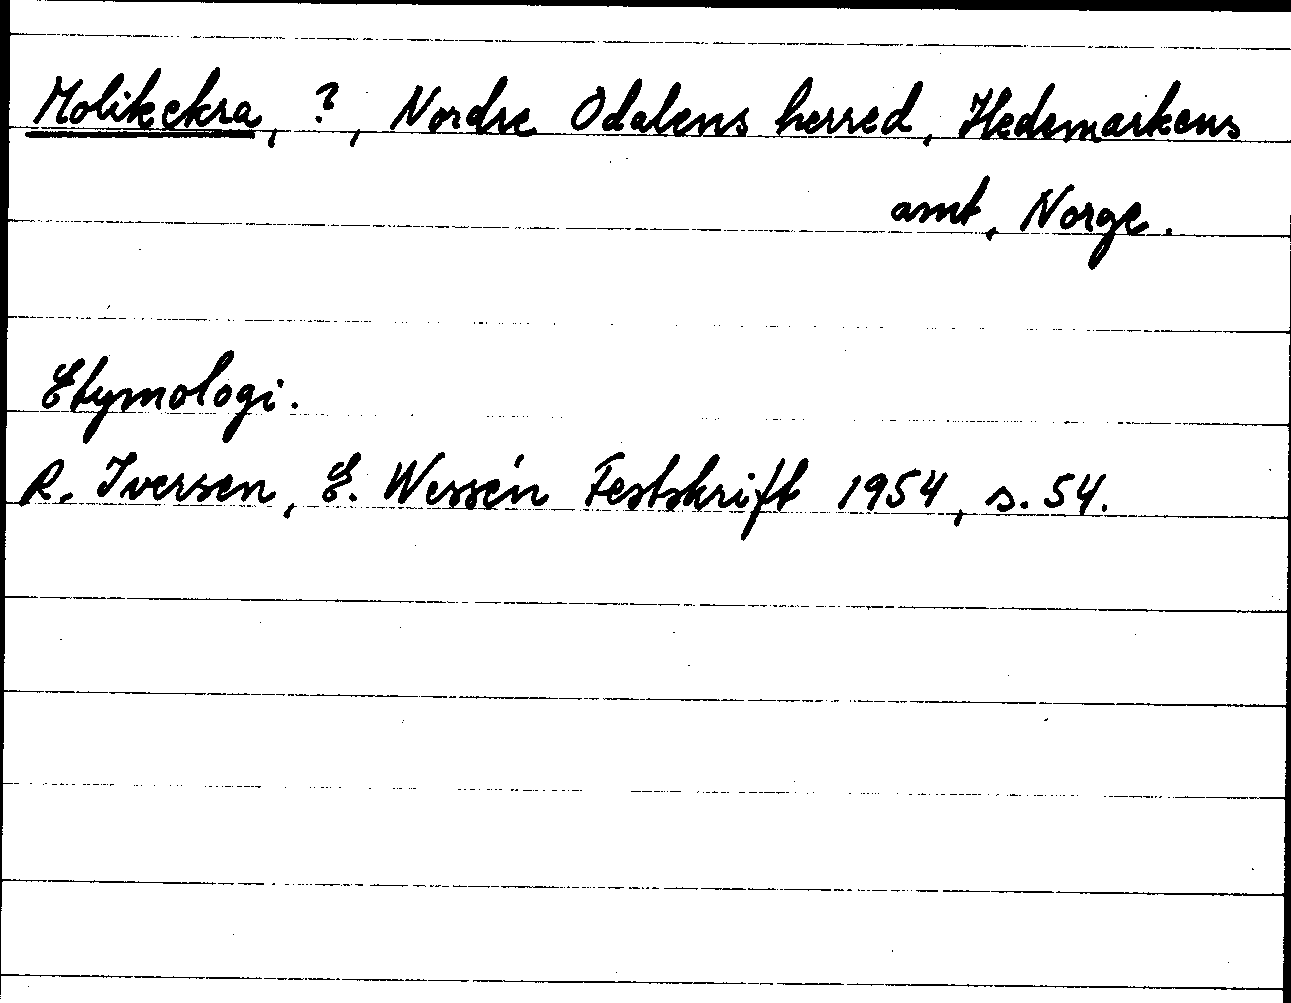 Molikekra, ?, Nordre Odalens herred, Hedemarkens
amt, Norge.
Etymologi.
R. Iversen, E. Wessén Festskrift 1954, s. 54.